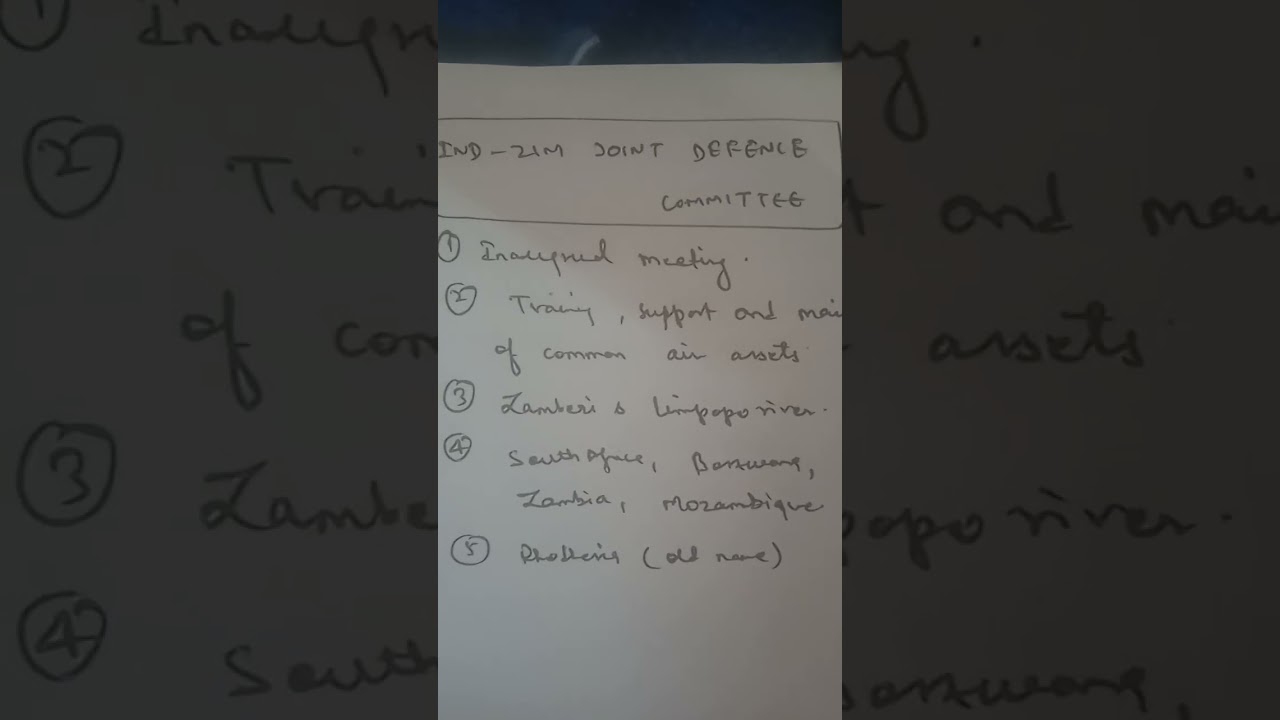 IND-ZIM JOINT DEFENCE
COMMITTEE
① Inaugural meeting.
② Training, support and mai
of common air assets.
③ Zambezi & Limpopo river.
④ South Africa, Botswana,
Zambia, Mozambique
⑤ Rhodesia (old name)